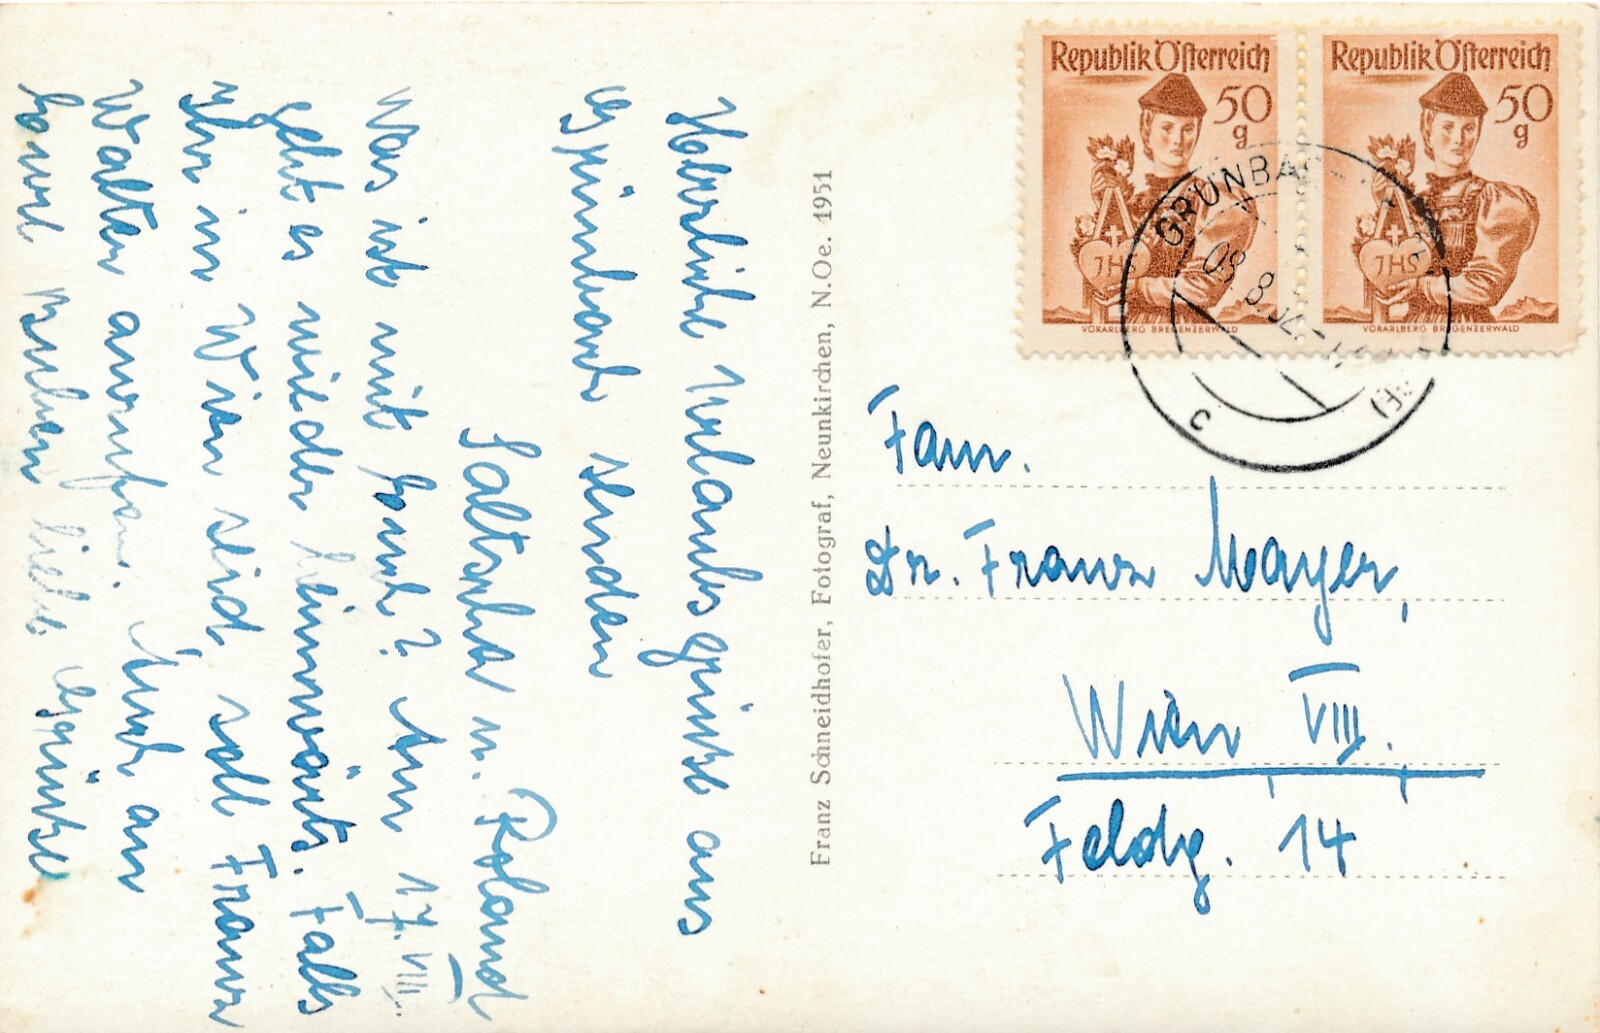 Republik Österreich
50
g
VORARLBERG BREGENZERWALD
Republik Österreich
50
g
VORARLBERG BREGENZERWALD
JHS
JHS
GRÜNBACH
Herzliche Urlaubsgrüße aus
Grünbach senden
u. Roland
Was ist mit Am 17.VIII.
geht es wieder heimwärts. Falls
Ihr in Wien seid, soll Franz
Walter anrufen. Auch an
Buben liebe Grüße
Franz Schneidhofer, Fotograf, Neunkirchen, N.Oe. 1951
Fam.
Dr. Franz Mayer,
Wien VIII.
Feldg. 14